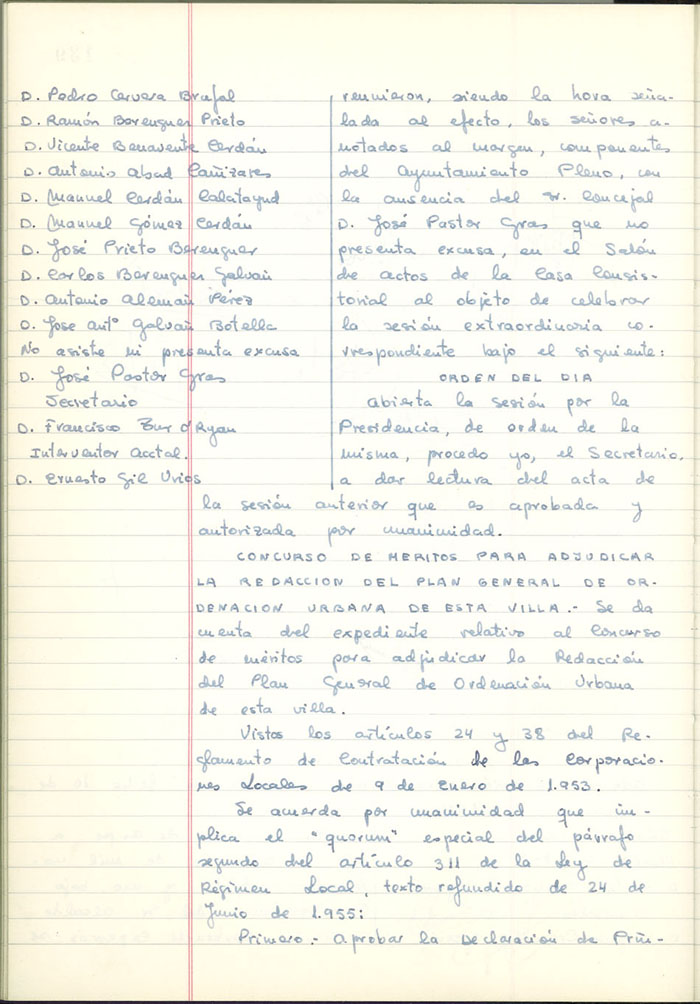 D. Pedro Cervera Brufal
D. Ramón Berenguer Prieto
D. Vicente Benavente Cerdán
D. Antonio Abad Cañizares
D. Manuel Cerdán Calatayud
D. Manuel Gómez Cerdán
D. José Prieto Berenguer
D. Carlos Berenguer Galvañ
D. Antonio Alemañ Pérez
D. Jose Antº Galvañ Botella
No asiste ni presenta excusa
D. José Pastor Gras
Secretario
D. Francisco O'Ryan
Interventor Acctal.
D. Ernesto Gil Urios
reunieron, siendo la hora seña-
lada al efecto, los señores a-
notados al margen, componentes
del Ayuntamiento Pleno, con
la ausencia del Sr. Concejal
D. José Pastor Gras que no
presenta excusa, en el Salón
de actos de la Casa Consis-
torial al objeto de celebrar
la sesión extraordinaria co-
rrespondiente bajo el siguiente:
ORDEN DEL DIA
Abierta la sesión por la
Presidencia, de orden de la
misma, procedo yo, el Secretario,
a dar lectura del acta de
la sesión anterior que es aprobada y
autorizada por unanimidad.
CONCURSO DE MERITOS PARA ADJUDICAR
LA REDACCION DEL PLAN GENERAL DE OR-
DENACION URBANA DE ESTA VILLA.- Se da
cuenta del expediente relativo al Concurso
de méritos para adjudicar la Redacción
del Plan General de Ordenación Urbana
de esta villa.
Vistos los artículos 24 y 38 del Re-
glamento de Contratación de las Corporacio-
nes Locales de 9 de Enero de 1.953.
Se acuerda por unanimidad que im-
plica el "quorum" especial del párrafo
segundo del artículo 311 de la Ley de
Régimen Local, texto refundido de 24 de
Junio de 1.955:
Primero.- Aprobar la Declaración de Prin-